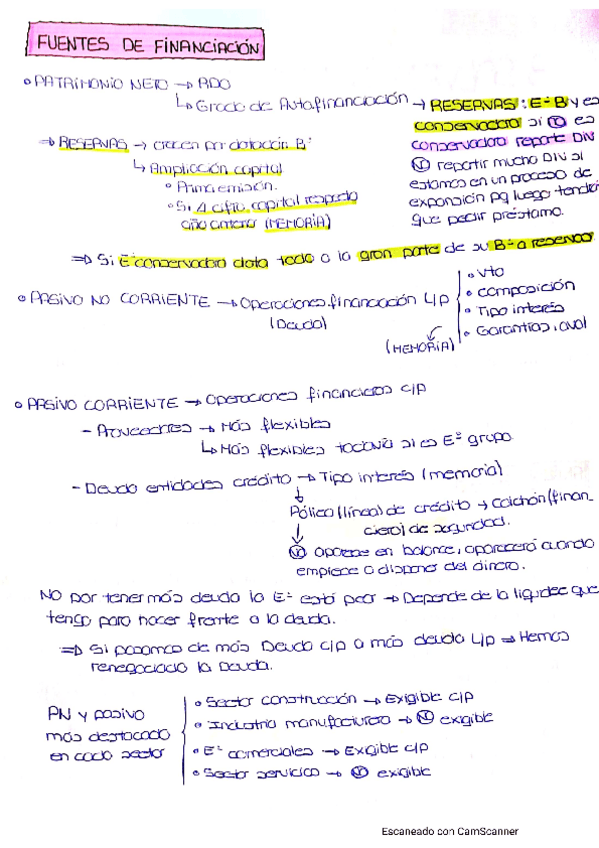 FUENTES DE FINANCIACIÓN
• PATRIMONIO NETO → RDO
↳ Grado de Autofinanciación → RESERVAS: Eª Bº y es
conservadora si Ⓝ es
conservadora reparte DIV
Ⓝ repartir mucho DIV si
estamos en un proceso de
expansión pq luego tendrá
que pedir préstamo.
⇒ RESERVAS → crecen por dotación Bº
↳ Ampliación capital
• Prima emisión.
• Si Δ cifra capital respecto
año anterior (MEMORIA)
⇒ Si Eª conservadora dota todo o la gran parte de su Bº a reservas
• PASIVO NO CORRIENTE → Operaciones financiación L/p
(Deuda)
(MEMORIA)
• Vto
• composición
• Tipo interés
• Garantías, aval
• PASIVO CORRIENTE → Operaciones financieras c/p
- Proveedores → Más flexibles
↳ Más flexibles todavía si es Eª grupo
- Deuda entidades crédito → Tipo interés (memoria)
↓
Póliza (línea) de crédito → Colchón (finan-
ciero) de seguridad.
↓
Ⓝ aparece en balance, aparecerá cuando
empiece a disponer del dinero.
NO por tener más deuda la Eª está peor → Depende de la liquidez que
tengo para hacer frente a la deuda.
⇒ Si pasamos de más Deuda c/p a más deuda L/p ⇒ Hemos
renegociado la Deuda.
PN y pasivo
más destacado
en cada sector
• Sector construcción → Exigible c/p
• Industria manufacturera → Ⓝ exigible
• Eª comerciales → Exigible c/p
• Sector servicios → Ⓝ exigible
Escaneado con CamScanner